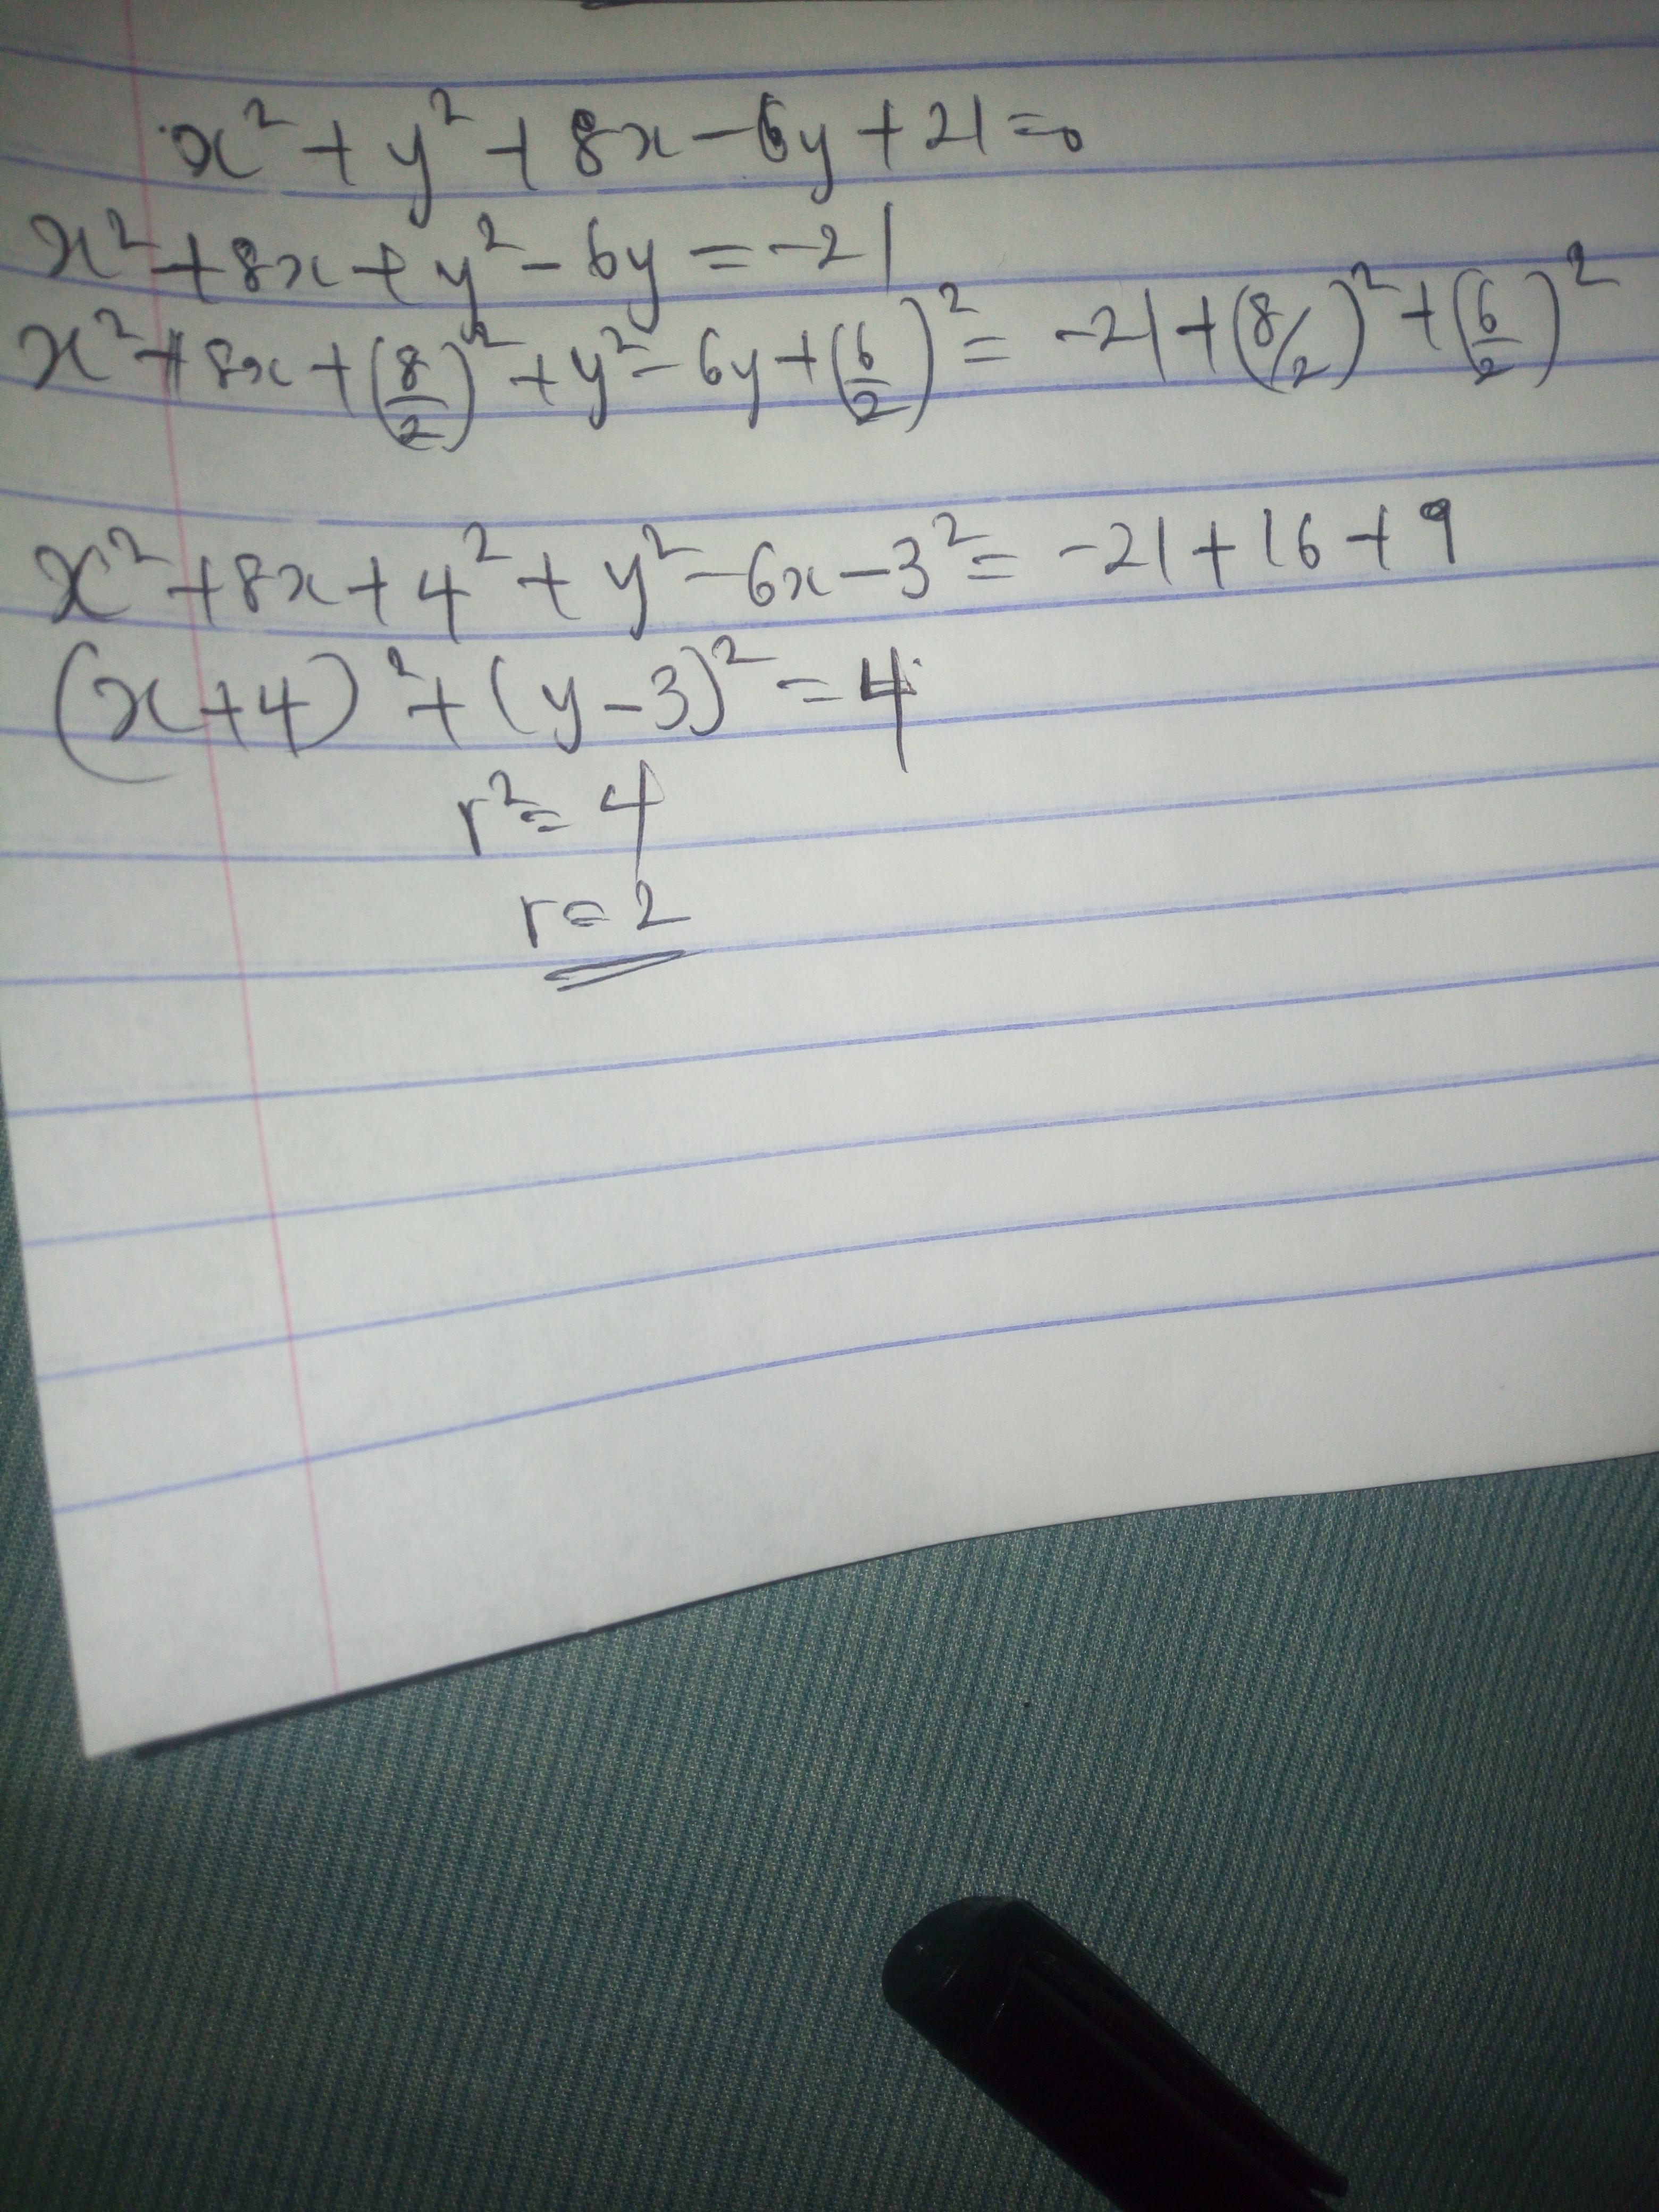 x² + y² + 8x - 6y + 21 = 0
x² + 8x + y² - 6y = -21
x² + 8x + (8/2)² + y² - 6y + (6/2)² = -21 + (8/2)² + (6/2)²
x² + 8x + 4² + y² - 6x - 3² = -21 + 16 + 9
(x + 4)² + (y - 3)² = 4
r² = 4
r = 2